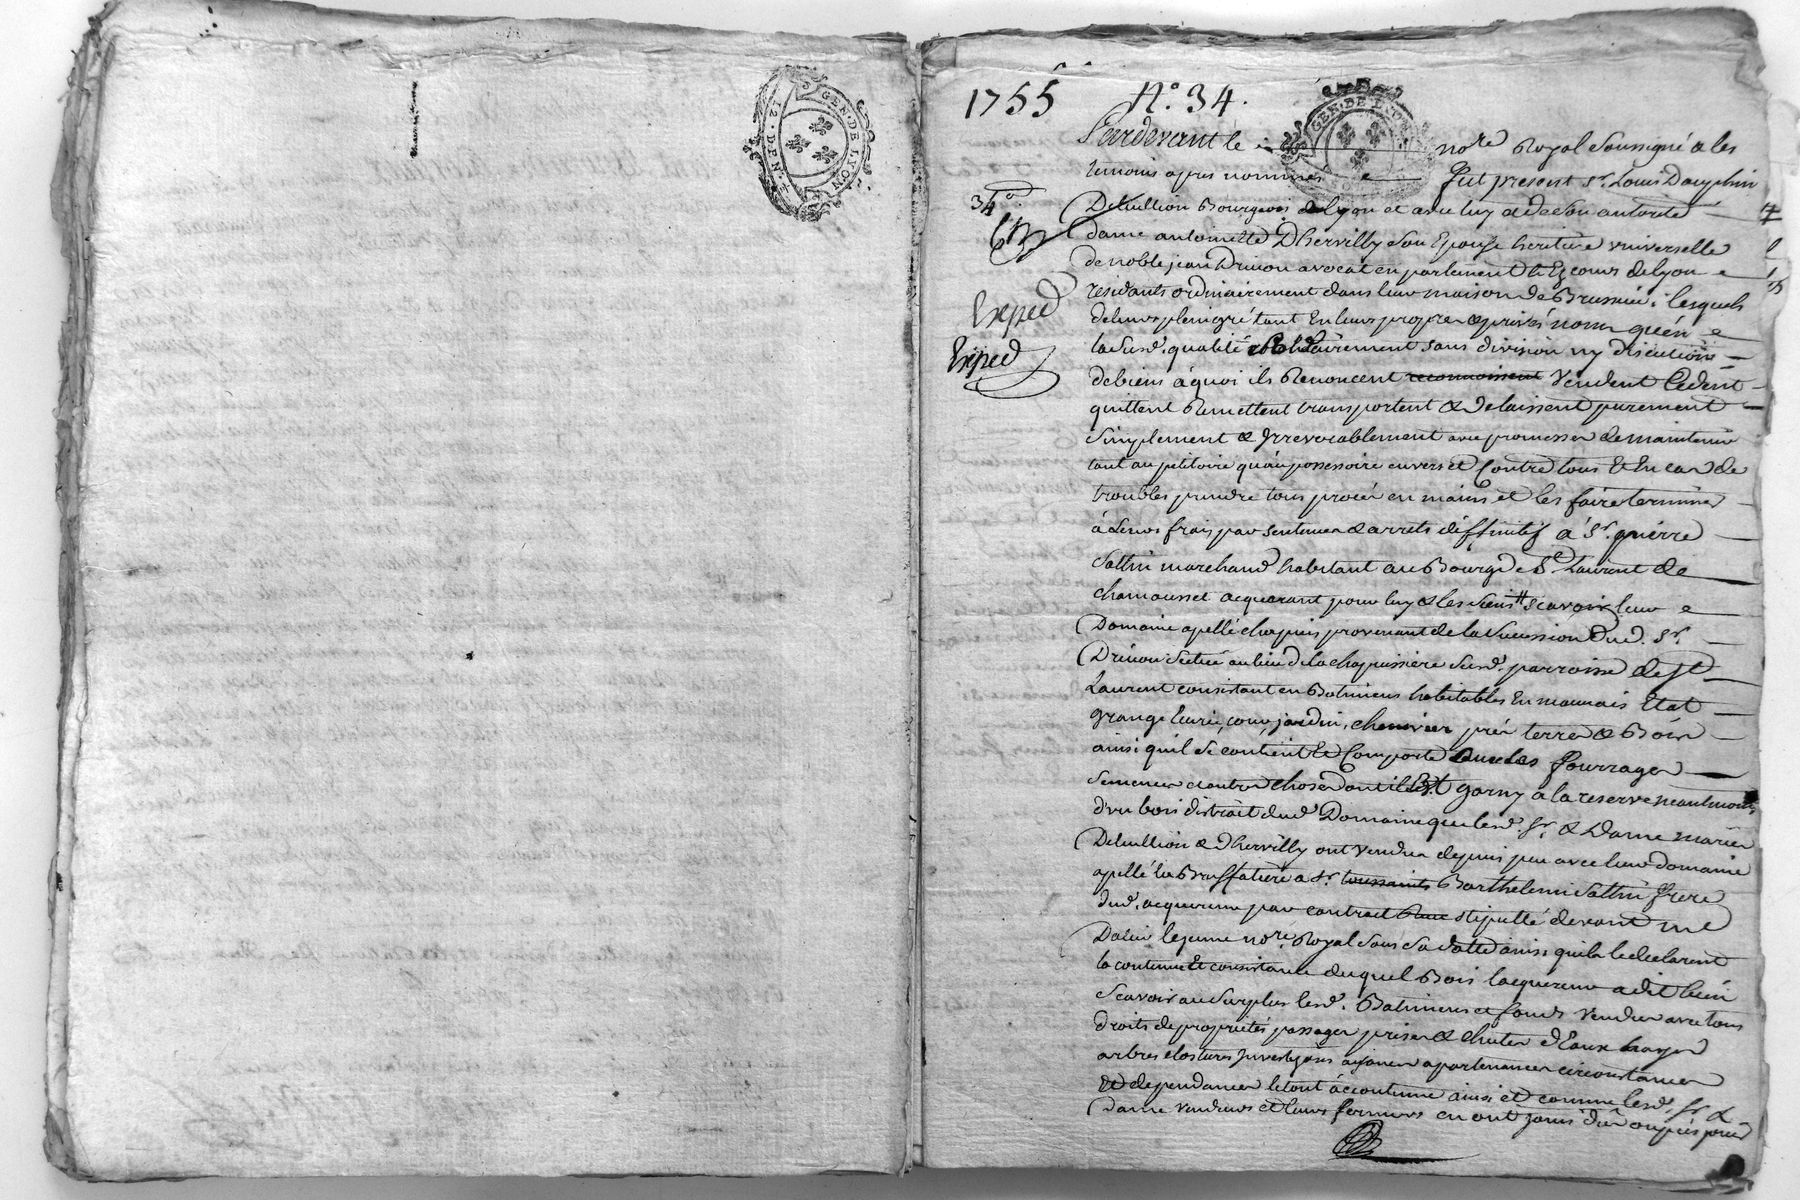 GEN·DE LYON
12·DEN
1755 N.° 34.
GEN·DE LYON
Pardevant le nore Royal Soussigné & les
temoins apres nommés fut present sr. Louis Dauphin
34
Decullion Bourgeois de Lyon et avec luy & de Son autorité
dame antoinette Dhervilly Son Epouse heritiere universelle
de noble jean Drivon avocat en parlement & Ez cours de Lyon
residants ordinairement dans leur maison de Brussieu, lesquels
Exped
de leurs plein gré tant En leurs propres & privés noms quén
la Susd. qualité & Solidairement sans division ny discution
Exped
de biens à quoi ils Renoncent reconnoissent Vendent Cedent
quittent Remettent transportent & Delaissent purement
Simplement & Irrevocablement avec promesses de maintenir
tant au petitoire quáu possessoire envers et Contre tous Et En cas de
troubles prendre tous procés en mains et les faire terminer
à Leurs frais par sentences & arrets déffinitifs à Sr. pierre
Sattin marchand habitant au Bourg de St. Laurent de
chamousset acquerant pour luy & les Siens # scavoir leur
Domaine apellé chapuis provenant de la Succession dud. Sr.
Drivon Scitué au lieu de la chapuissiere Susd. parroisse de St
Laurent consistant en Batimens habitables En mauvais Etat
grange Ecurie, cour, jardin, chenevier prés terres & Bois
ainsi quil Se contient Et Comporte avec Les fourrages
Semences & autres choses dont il Est garny à la reserve neantmoins
d'un bois distrait dud. Domaine que lesd. Sr. & Dame mariés
Decullion & Dhervilly ont Vendus depuis peu avec leur domaine
apellé la Bruffatiere a Sr. toussaints Barthelemi Sattin frere
dud. acquereur par contrait stipullé devant me
Dalin le jeune nore. Royal Sous Sa datte ainsi quils le declarent
la contenue Et consistance duquel Bois lacquereur a dit bien
Scavoir au Surplus lesd. Batimens et fonds Vendus avec tous
droits de proprietés passages prises & chutes d'Eaux hayes
arbres clostures aysances apartenances circonstances
Et dependances le tout àccoutumé ainsi et comme lesd. Sr. &
dame vendeurs et leurs fermiers en ont jouis dû ou pûs jouir